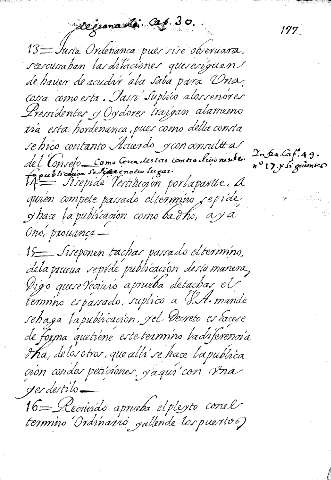 de granada. Cap. 30.
197
13 = Justa Ordenança pues si se observara
se escusaban las dilaciones que se siguen
de haver de acudir a la Sala para Una
cosa como esta. Jassi suplico a los señores
Presidentes y Oydores traygan a la memo
ria esta hordenança, pues como della consta
se hico con tanto Acuerdo, y con consultas
del Consejo
publicacion
lugar.
Infra Cap. 49.
nº 17. y siguientes
14 = Si se pide restitucion por la parte. A
quien compete passado el termino se pide
y hace la publicacion como ba dho, a ya
15 = Si se ponen tachas passado el termino,
de la prueva se pide publicacion desta manera,
Digo que se recivio a prueba de tachas el
termino es passado, suplico a V. A. mande
se haga la publicacion, y el Decreto es la ce se
de forma que tiene este termino la diferencia
dha, de los otros, que alli se hace la publica
cion con dos peticiones, y aqui con una
y es destilo
16 = Recivido a prueba el pleyto con el
termino Ordinario y allende los puertos